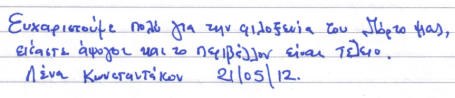 Ευχαριστούμε πολύ για την φιλοξενία του Πόρτο μας,
είσαστε άψογοι και το περιβάλλον είναι τέλειο.
Λένα Κωνσταντάκου 21/05/12.